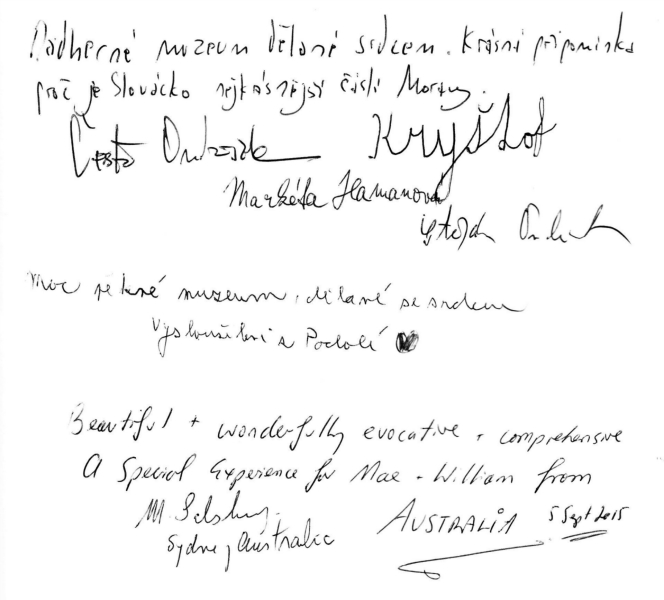 Nádherné muzeum dělané srdcem. Krásná připomínka
proč je Slovácko nejkrásnější částí Moravy.
Kryštof
Markéta Hamanová
Moc pěkné muzeum, dělané se srdcem
z Podolí
Beautiful + wonderfully evocative + comprehensive
A Special Experience for Mae + William from
M.
AUSTRALIA 5 Sept 2015
Sydney, Australia